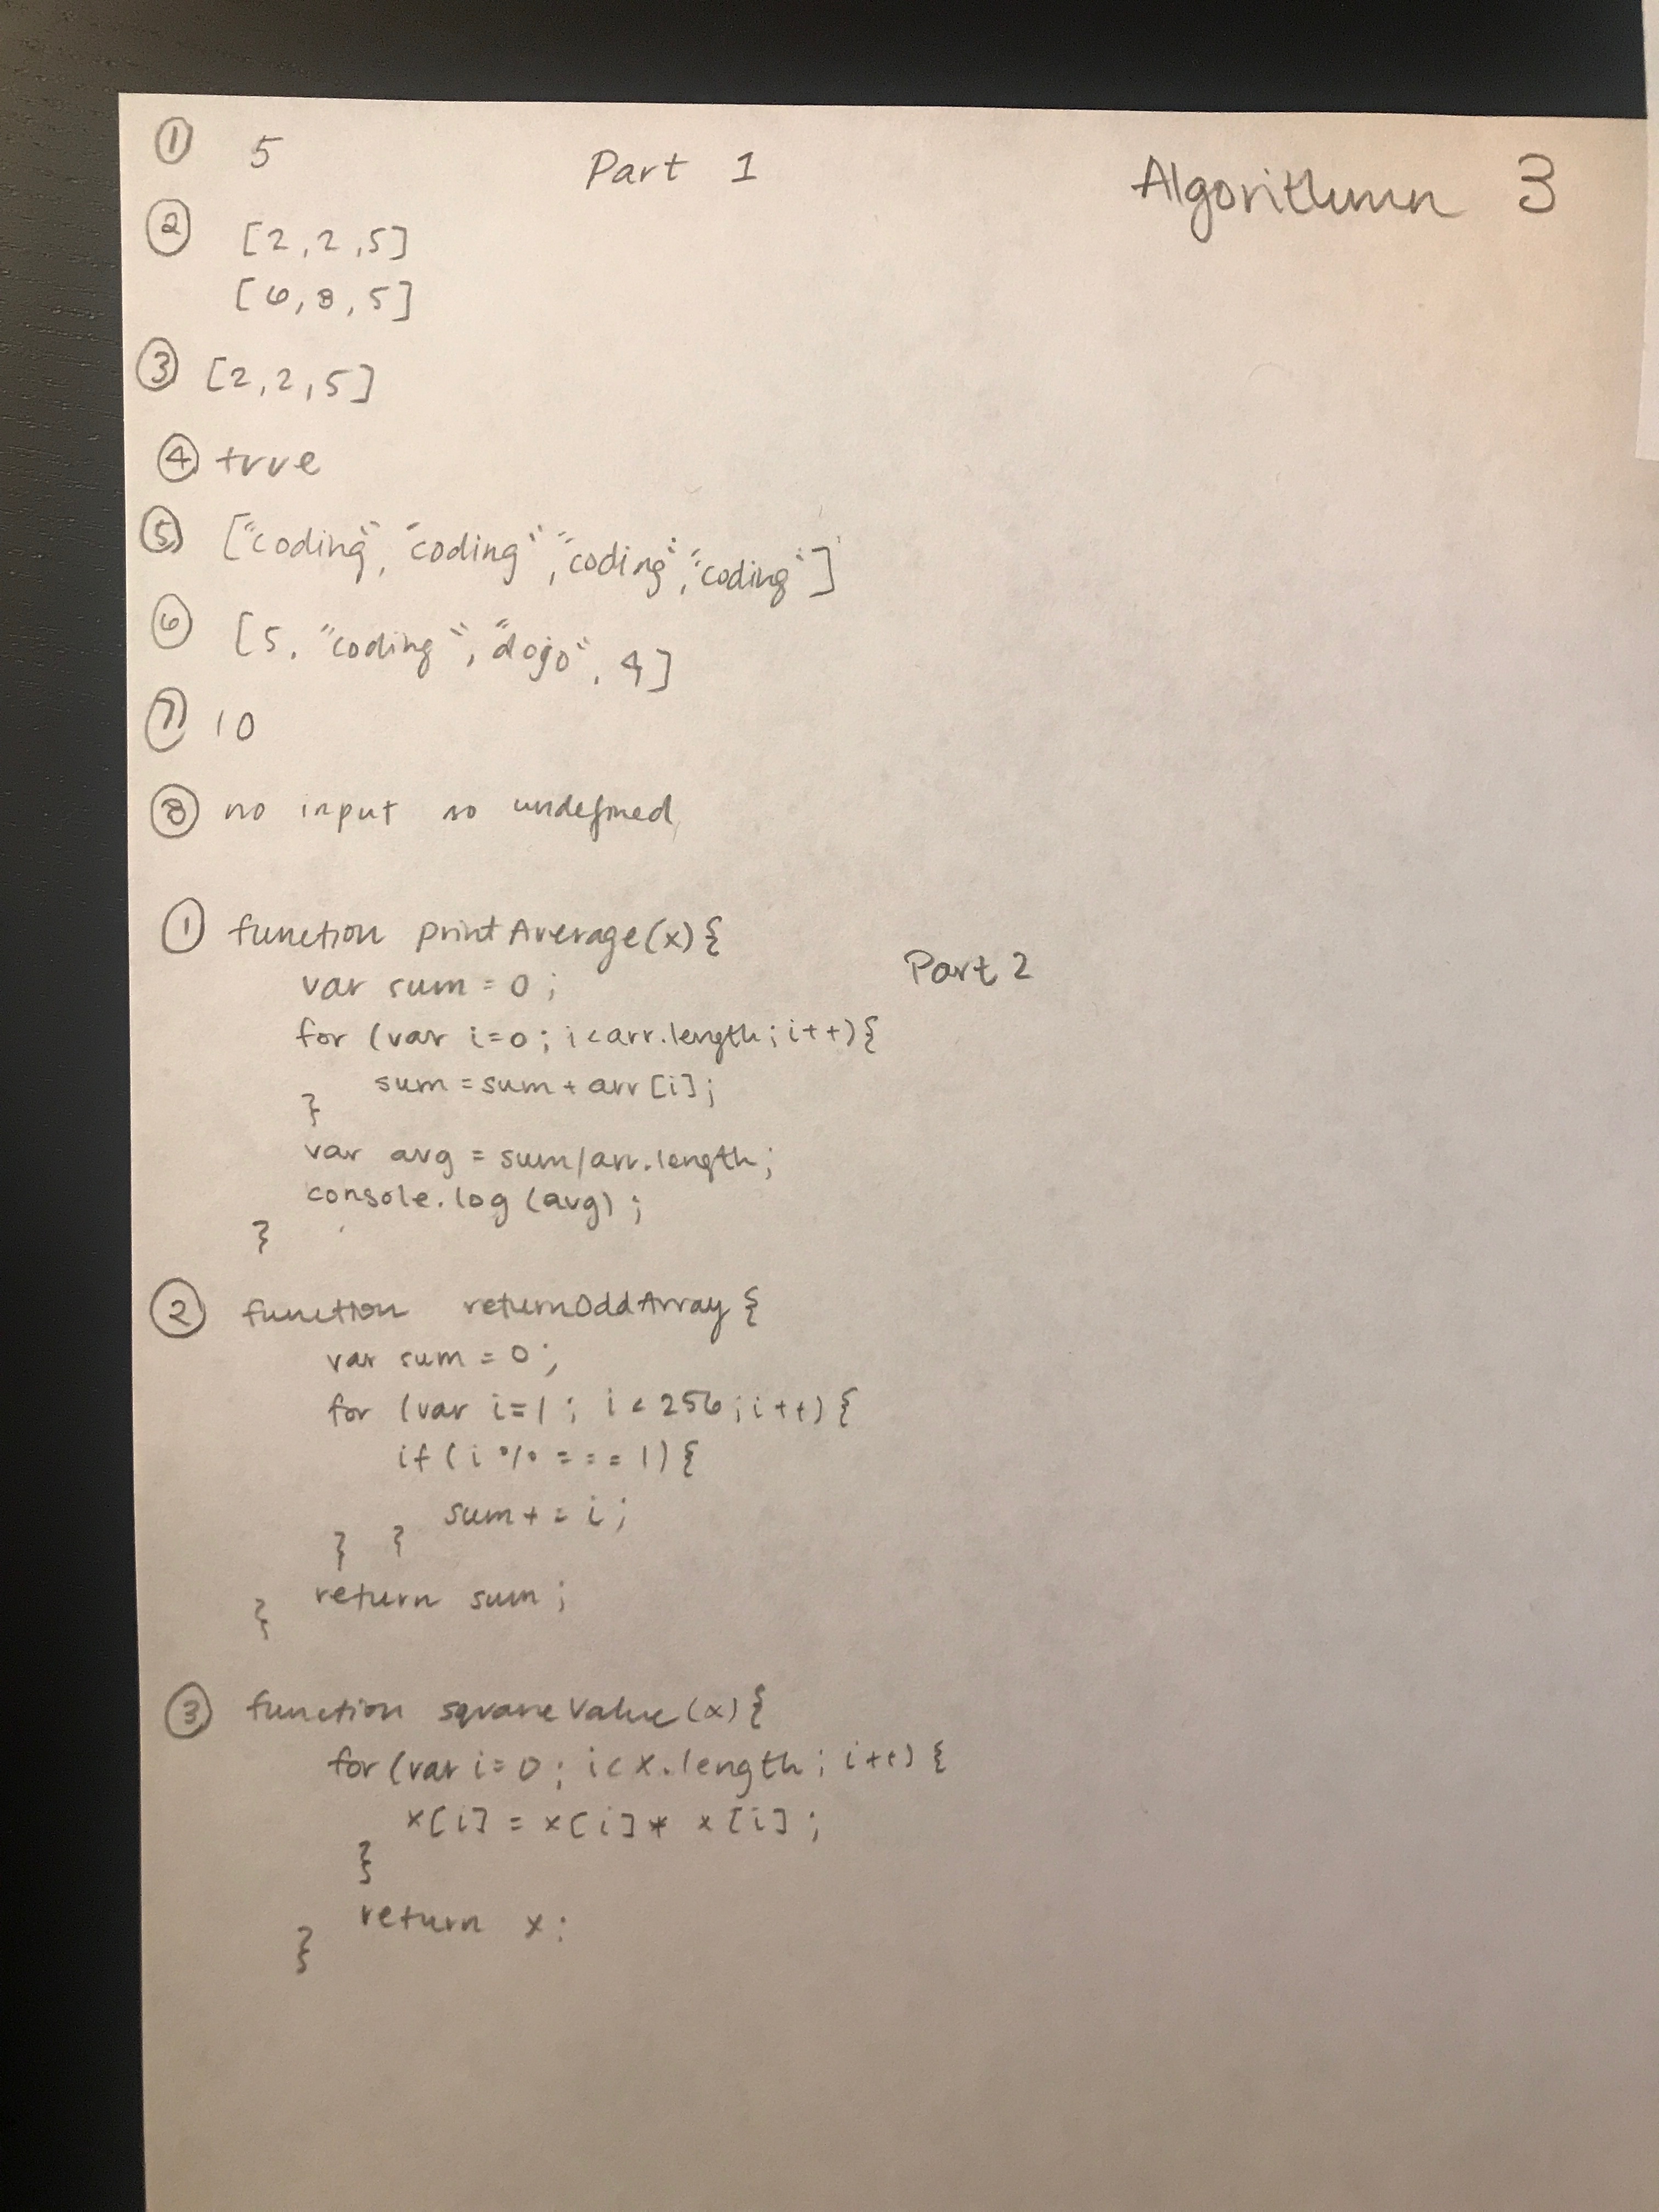 ① 5
Part 1
Algorithmn 3
② [2,2,5]
[6,8,5]
③ [2,2,5]
④ true
⑤ ["coding", "coding", "coding", "coding"]
⑥ [5, "coding", "dojo", 4]
⑦ 10
⑧ no input so undefined
① function printAverage(x){
Part 2
var sum = 0;
for (var i=0; i<arr.length; i++){
sum = sum + arr[i];
}
var avg = sum/arr.length;
console.log(avg);
}
② function returnOddArray {
var sum = 0;
for (var i=1; i<256; i++){
if (i % === 1){
sum += i;
} }
return sum;
}
③ function squareValue(x){
for (var i=0; i<x.length; i++) {
x[i] = x[i] * x[i];
}
return x;
}